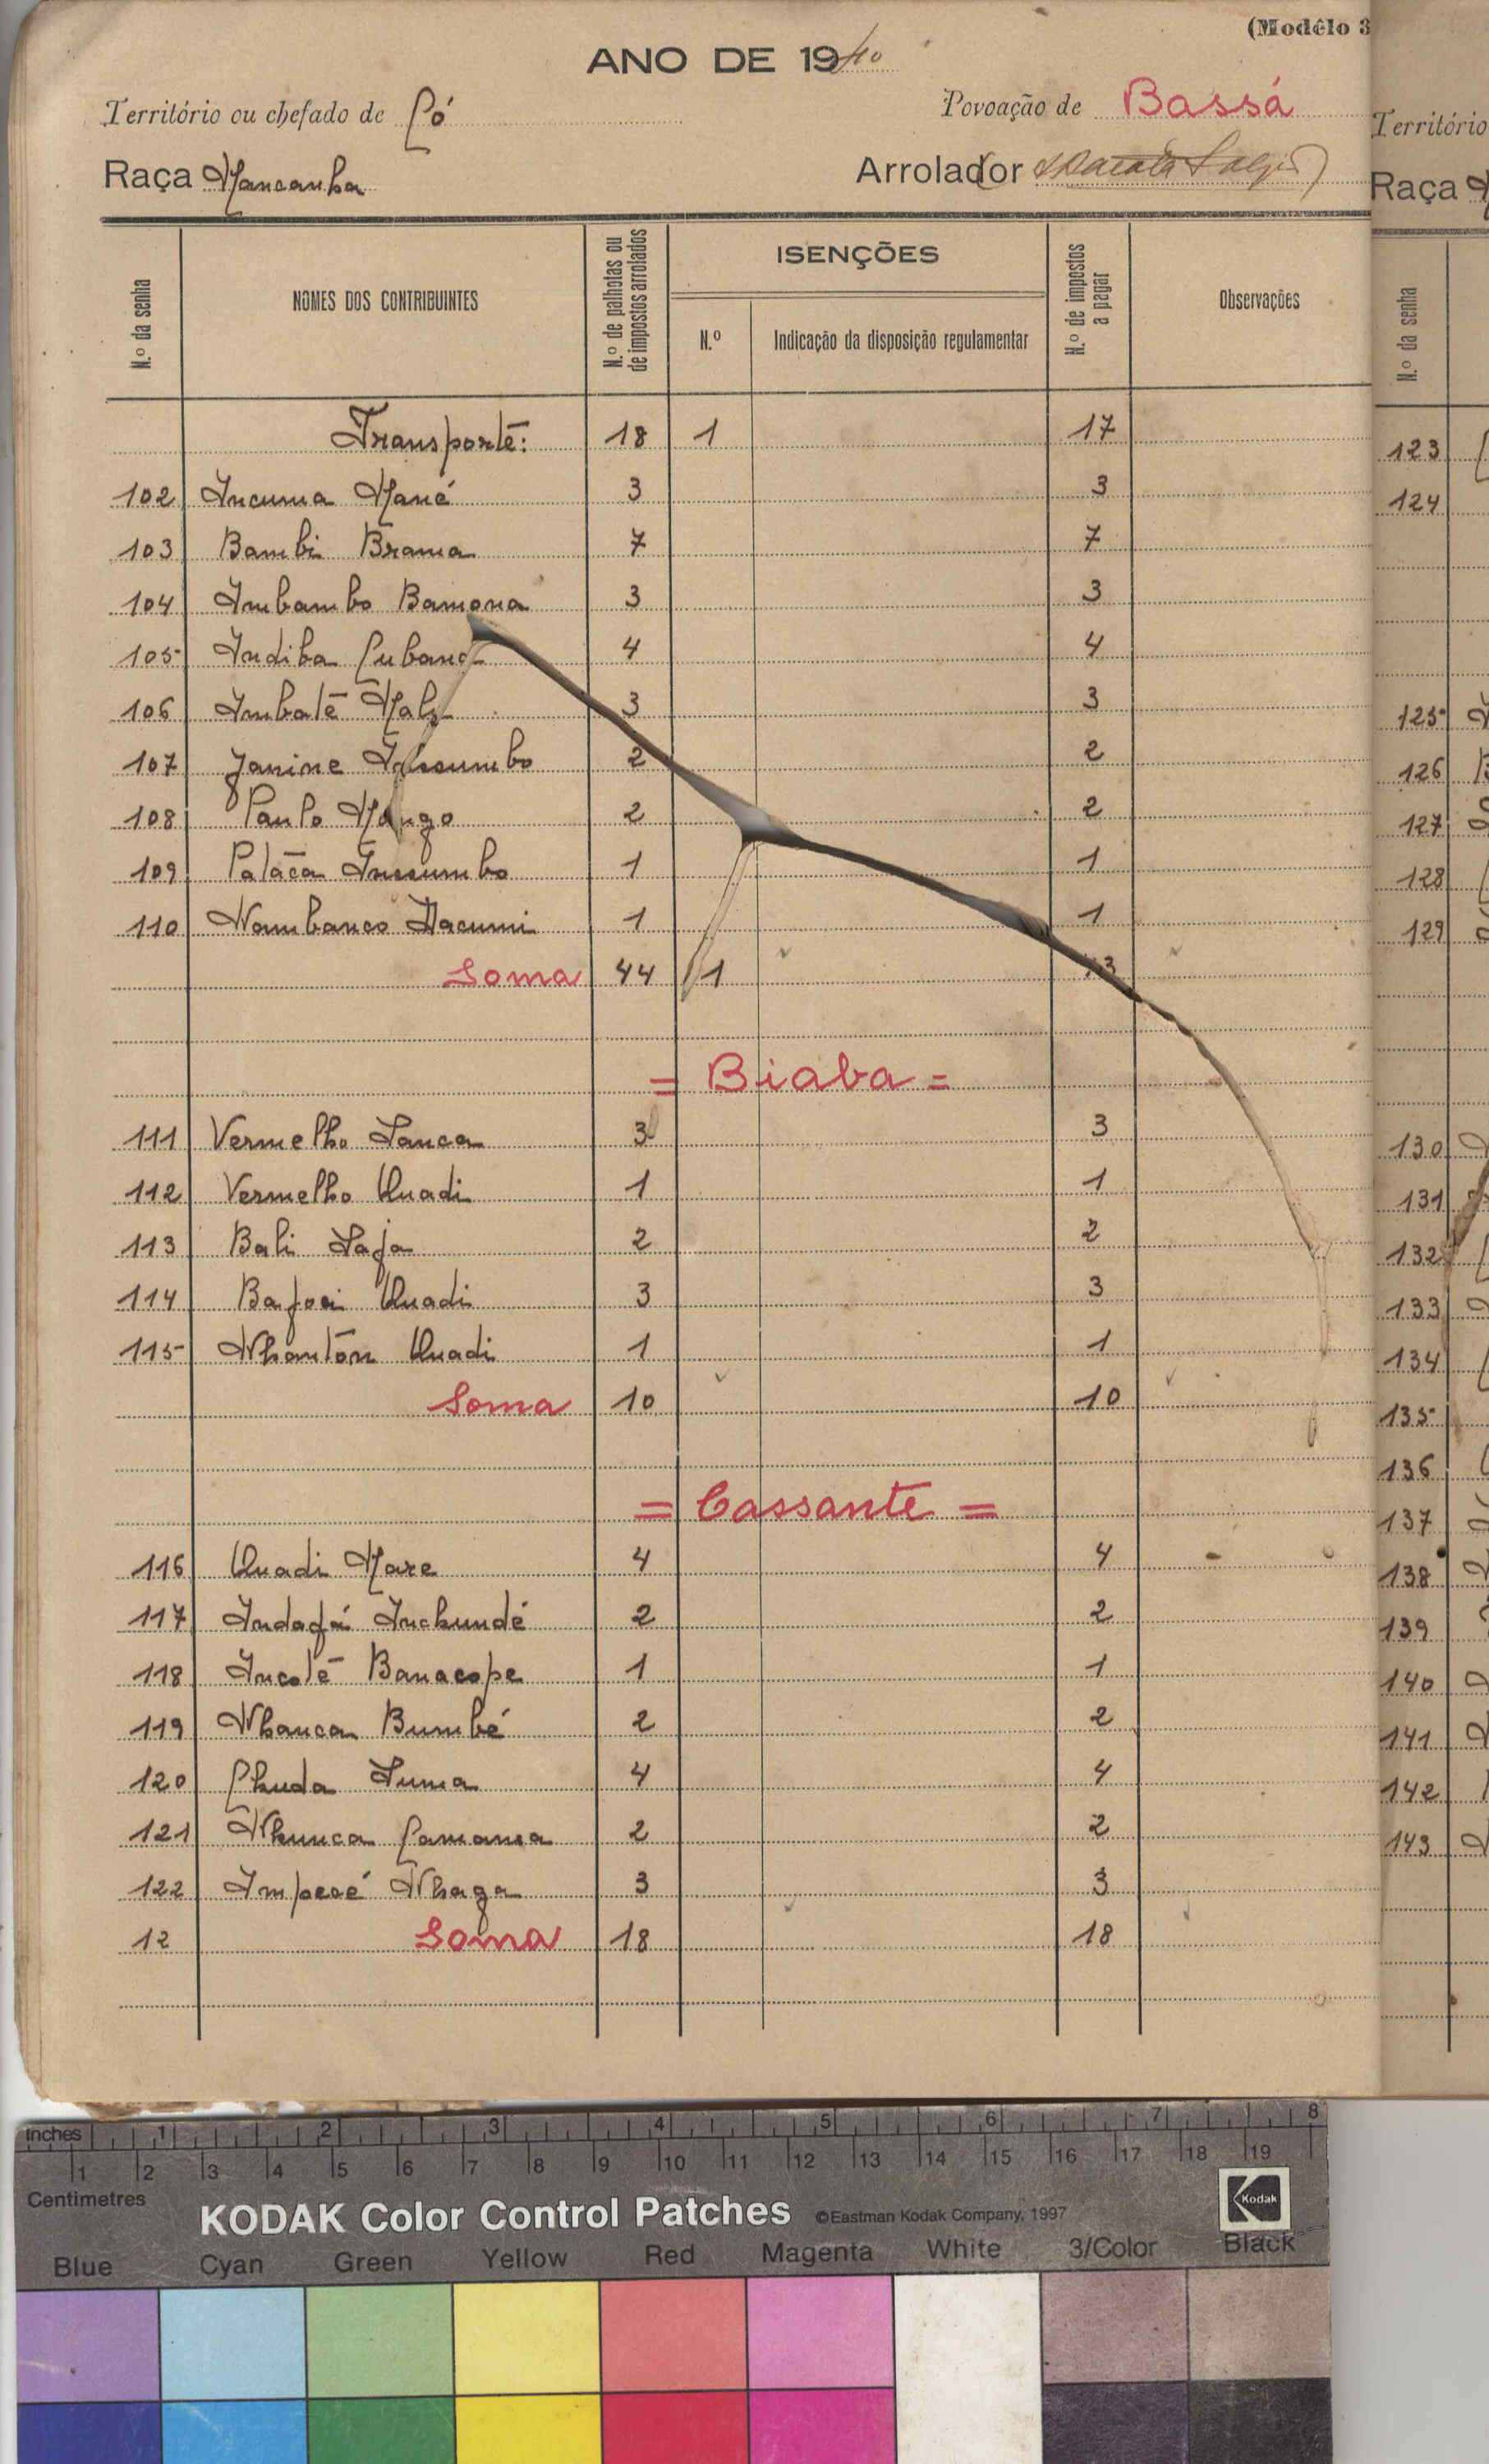 (Modêlo 3
ANO DE 1940
Território ou chefado de Có
Povoação de Bassá
Raça Mancanha
Arrolador
N.º da senha
NOMES DOS CONTRIBUINTES
N.º de palhotas ou de impostos arrolados
ISENÇÕES
N.º
Indicação da disposição regulamentar
N.º de impostos a pagar
Observações
Transporte: 18 1 17
102 Incuma Mané 3 3
103 Bambi Brama 7 7
104 Imbambo Bamona 3 3
105 Indiba Cubana 4 4
106 Imbatê 3 3
107 Janine 2 2
108 Paulo Mango 2 2
109 Palaca Inssumbo 1 1
110 Nambanco Dacumi 1 1
Soma 44 1 43
= Biaba =
111 Vermelho Sanca 3 3
112 Vermelho Quadi 1 1
113 Bali Saja 2 2
114 Bafoi Quadi 3 3
115 Nhantôn Quadi 1 1
Soma 10 10
= Cassante =
116 Quadi Mare 4 4
117 Indafá Inchundé 2 2
118 Incolê Banacope 1 1
119 Nhanca Bumbé 2 2
120 Chuda Suma 4 4
121 Nhunca Camansa 2 2
122 Impecé Nhaga 3 3
12 Soma 18 18
Território
Raça
N.º da senha
123
124
125
126
127
128
129
130
131
132
133
134
135
136
137
138
139
140
141
142
143
Inches 1 2 3 4 5 6 7 8
1 2 3 4 5 6 7 8 9 10 11 12 13 14 15 16 17 18 19
Centimetres
KODAK Color Control Patches ©Eastman Kodak Company, 1997 Kodak
Blue Cyan Green Yellow Red Magenta White 3/Color Black